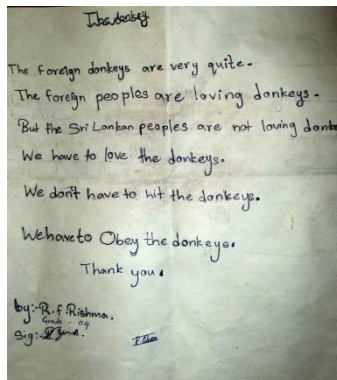 The donkey
The foreign donkeys are very quite.
The foreign peoples are loving donkeys.
But the Sri Lankan peoples are not loving donk
We have to love the donkeys.
We don't have to hit the donkeys.
We have to Obey the donkeys.
Thank you.
by:- R.f.Rishma.
Grade - 04
Sig:-